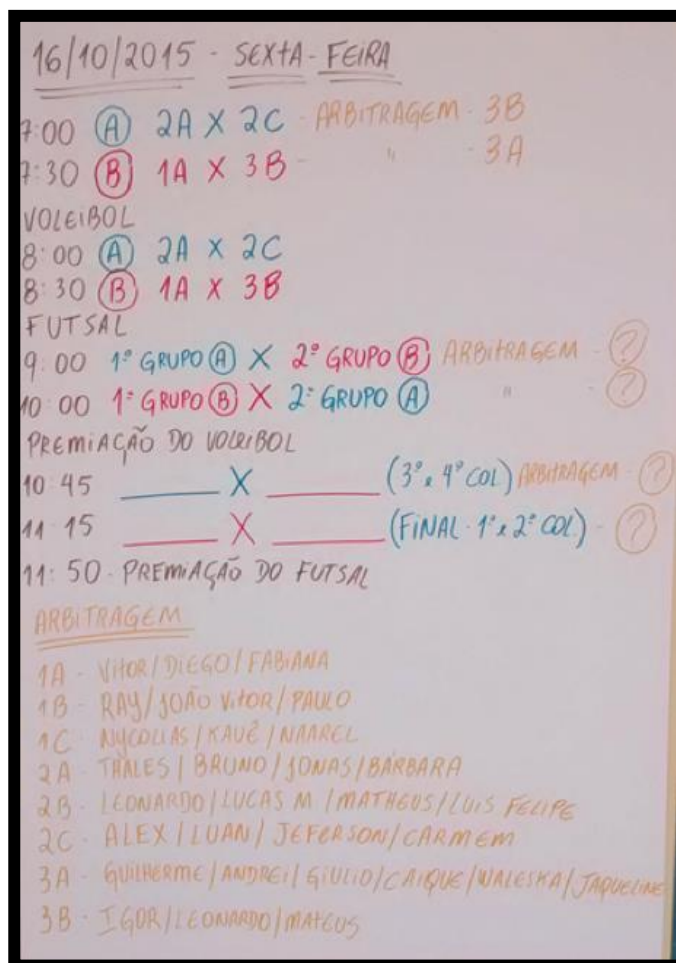 16/10/2015 - SEXTA-FEIRA
7:00 (A) 2A X 2C - ARBITRAGEM - 3B
7:30 (B) 1A X 3B - " - 3A
VOLEIBOL
8:00 (A) 2A X 2C
8:30 (B) 1A X 3B
FUTSAL
9:00 1º GRUPO (A) X 2º GRUPO (B) ARBITRAGEM - (?)
10:00 1º GRUPO (B) X 2º GRUPO (A) " - (?)
PREMIAÇÃO DO VOLEIBOL
10:45 ______ X ______ (3º x 4º COL) ARBITRAGEM - (?)
11:15 ______ X ______ (FINAL - 1º x 2º COL.) - (?)
11:50 - PREMIAÇÃO DO FUTSAL
ARBITRAGEM
1A - VITOR/DIEGO/FABIANA
1B - RAY/JOÃO VITOR/PAULO
1C - NYCOLLAS/KAUÊ/NAAREL
2A - THALES/BRUNO/JONAS/BÁRBARA
2B - LEONARDO/LUCAS M/MATHEUS/LUIS FELIPE
2C - ALEX/LUAN/JEFERSON/CARMEM
3A - GUILHERME/ANDREI/GIULIO/CAIQUE/WALESKA/JAQUELINE
3B - IGOR/LEONARDO/MATEUS